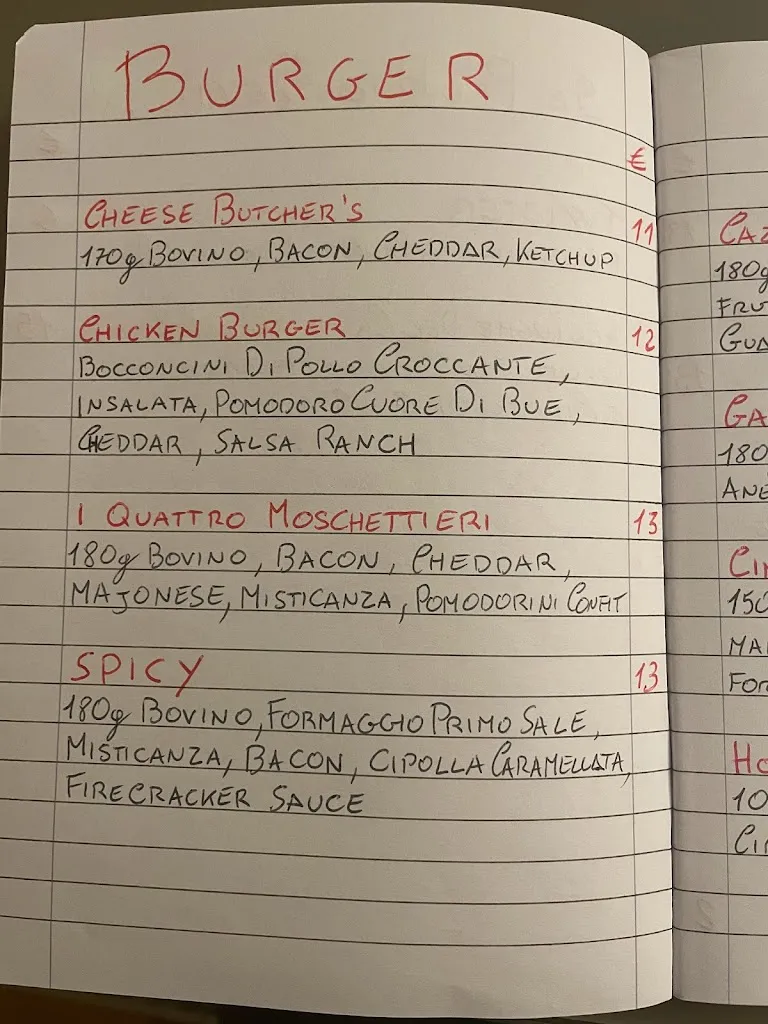 BURGER
€
CHEESE BUTCHER'S 11
170g BOVINO, BACON, CHEDDAR, KETCHUP
CHICKEN BURGER 12
BOCCONCINI DI POLLO CROCCANTE,
INSALATA, POMODORO CUORE DI BUE,
CHEDDAR, SALSA RANCH
I QUATTRO MOSCHETTIERI 13
180g BOVINO, BACON, CHEDDAR,
MAJONESE, MISTICANZA, POMODORINI CONFIT
SPICY 13
180g BOVINO, FORMAGGIO PRIMO SALE,
MISTICANZA, BACON, CIPOLLA CARAMELLATA,
FIRECRACKER SAUCE
180g
180
150
10